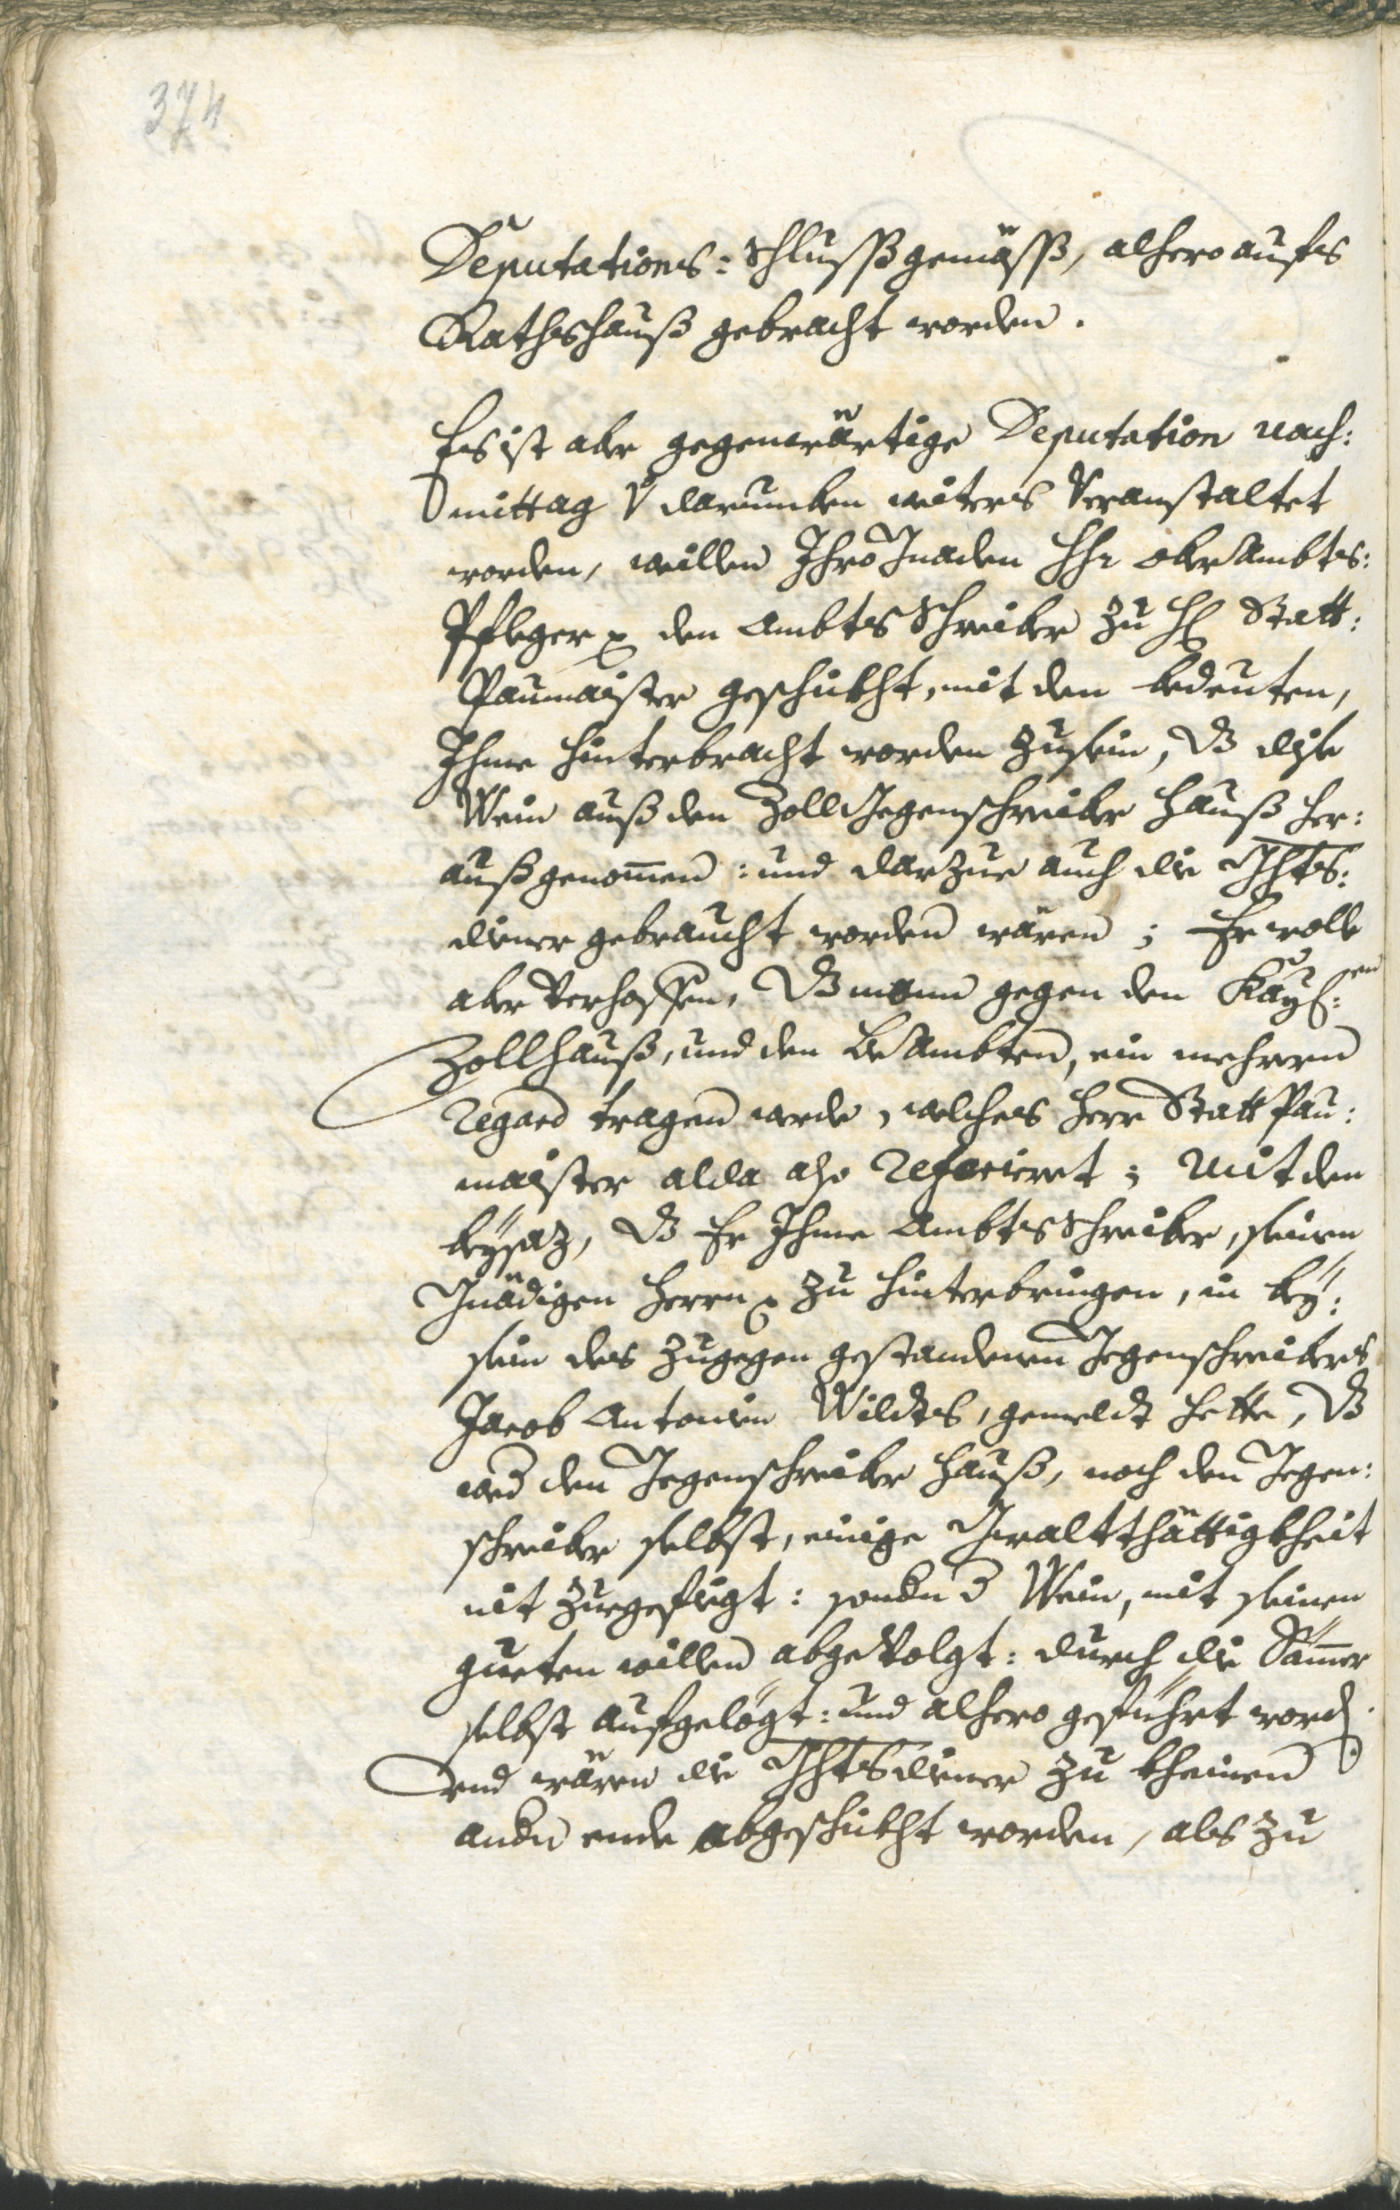 374
Deputations: Schlusß gemäsß, alhero aufs
Rathshauß gebracht worden.
Es ist aber gegenwärtige Deputation nach:
mittag darumben weiters Veranstaltet
worden, weillen Ihro Gnaden Hhr ober Ambts:
Pfleger den Ambts Schreiber zu H Statt:
Paumaister geschikht, mit den bedeuten,
Ihme hinterbracht worden zusein, dz dise
Wein auß den Zoll Gegenschreiber Hauß her:
auß genom̅en: und darzue auch die Ghts:
diener gebraucht worden wären; Er wolle
aber Verhoffen, dz mann gegen den Kaysl:en
Zollhauß, und den beAmbten, ein mehrern
Regard tragen werde, welches Herr Statt Pau:
maister alda also Referieret; Mit den
beysaz, dz Er Ihme Ambts Schreiber, seinen
Gnädigen Herrn zu hinterbringen, in bey:
sein des zugegen gestandenen Gegenschreibers
Jacob Antonien Wildts, gemeldt hette, dz
wed den Gegenschreiber Hauß, noch den Gegen:
schreiber selbst, einige Gwaltthättigkheit
nit zuegefiegt: sondn d Wein, mit seinen
gueten willen abgeVolgt: durch die Säm̅er
selbst aufgelögt: und alhero geführt word.
und wären die Ghts diener zu kheinen
andn ende abgeschikht worden, als zu